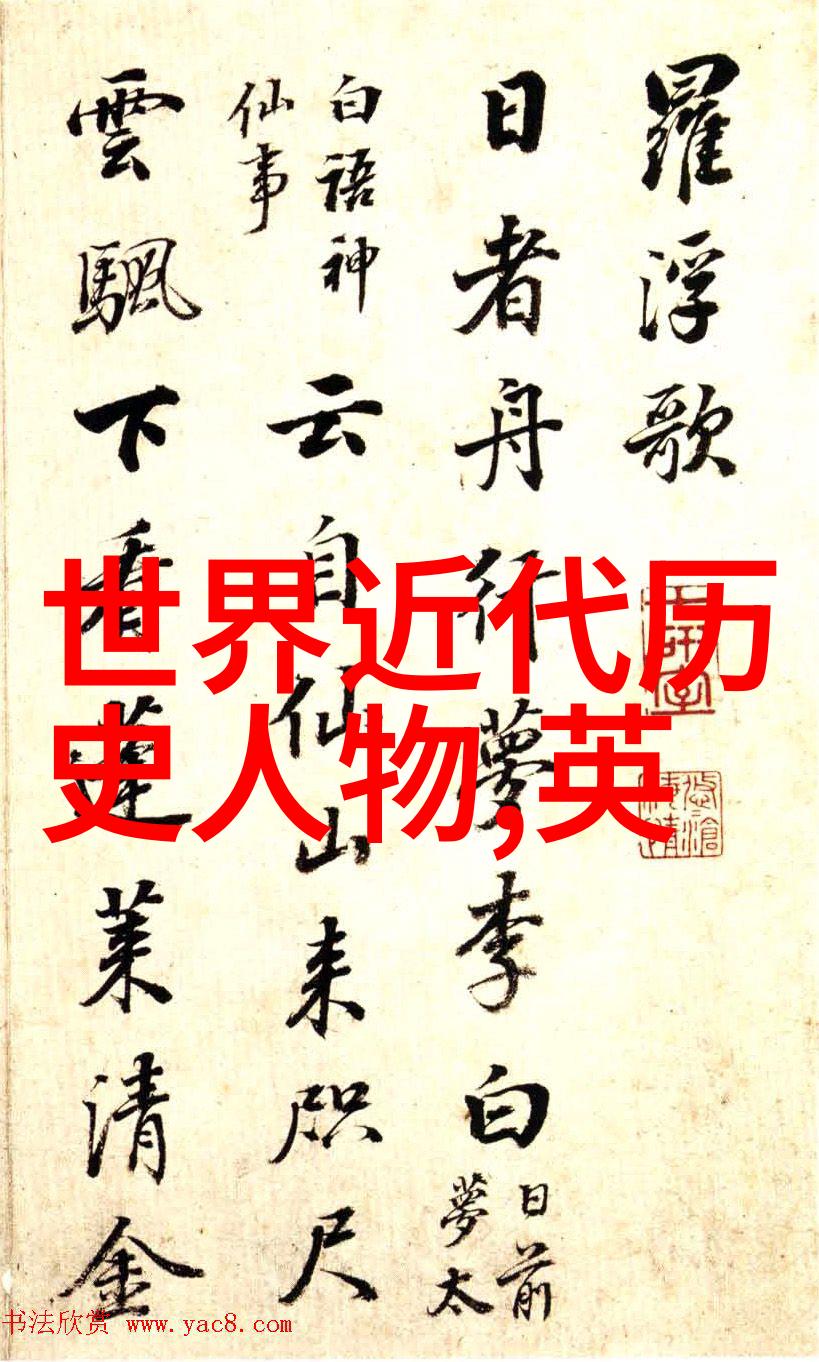 羅浮歌
日者舟行夢李白
日前
夢太
白語神
仙事
云自仙山来咫尺
雲颿下看蓬莱清金
世界近代历
史人物,英
书法欣赏 www.yac8.com